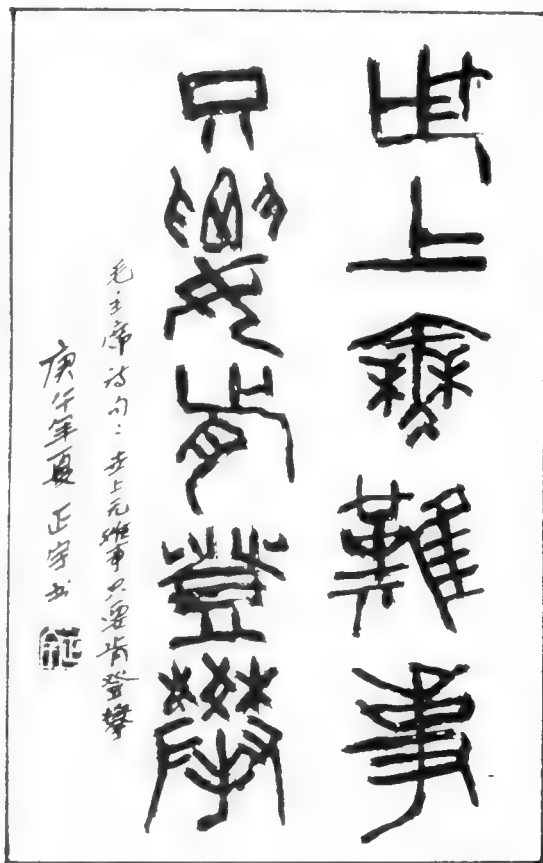 世上無難事
只要肯登攀
毛主席诗句：世上无难事只要肯登攀
庚午年夏 正宇书